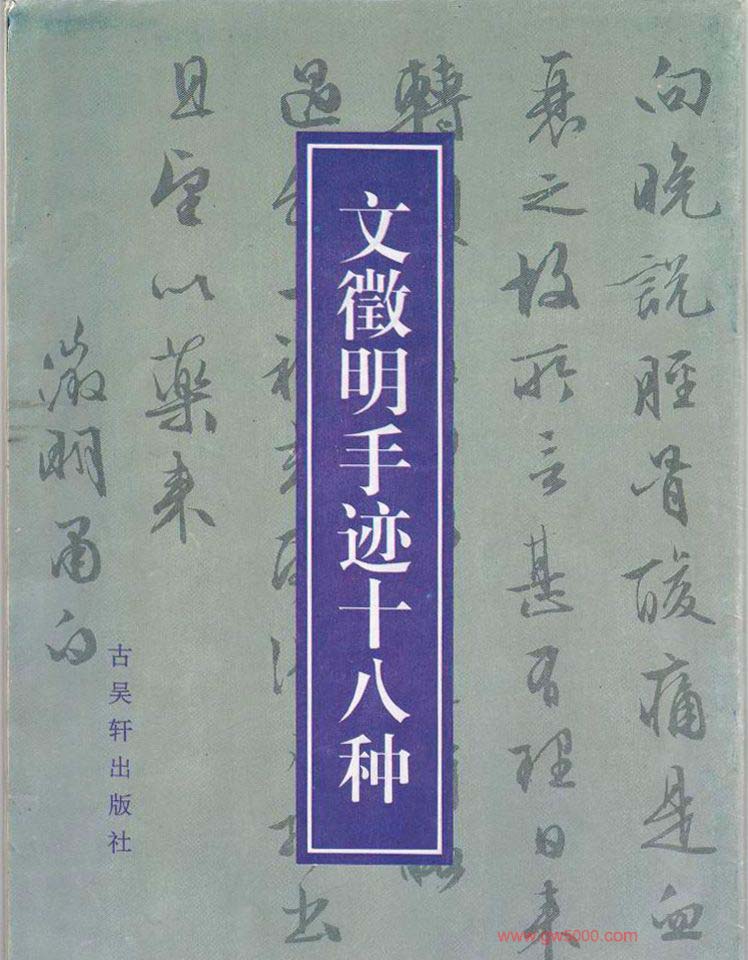 向晚說脛骨酸痛是血
衰之故所言甚有理日来
轉
過
出
且望以藥来
徵明甫白
文徵明手迹十八种
古吴轩出版社
www.gw5000.com